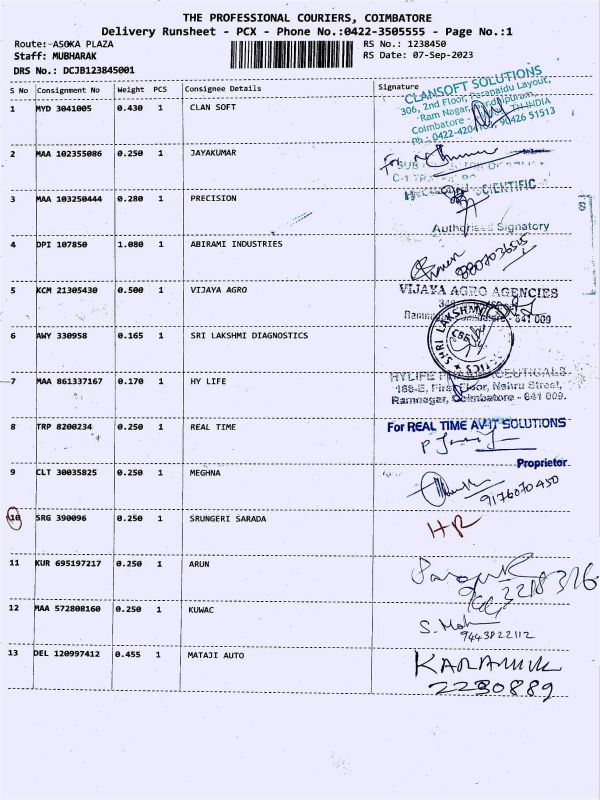 THE PROFESSIONAL COURIERS, COIMBATORE
Delivery Runsheet - PCX - Phone No.:0422-3505555 - Page No.:1
Route:-ASOKA PLAZA
RS No.: 1238450
Staff: MUBHARAK
RS Date: 07-Sep-2023
DRS No.: DCJB123845001
S No Consignment No Weight PCS Consignee Details Signature
1 MYD 3041005 0.430 1 CLAN SOFT
CLANSOFT SOLUTIONS
306, 2nd Floor, Layout,
Ram Nagar,
Coimbatore - INDIA
Ph : 0422-4204 90426 51513
2 MAA 102355086 0.250 1 JAYAKUMAR
3 MAA 103250444 0.280 1 PRECISION
SCIENTIFIC
Authorised Signatory
4 DPI 107850 1.080 1 ABIRAMI INDUSTRIES
5 KCM 21305430 0.500 1 VIJAYA AGRO
VIJAYA AGRO AGENCIES
641 009
6 AWY 330958 0.165 1 SRI LAKSHMI DIAGNOSTICS
SHRI LAKSHMI
CBE
7 MAA 861337167 0.170 1 HY LIFE
HYLIFE PHARMACEUTICALS
186-E, First Floor, Nehru Street,
Ramnagar, Coimbatore - 641 009.
8 TRP 8200234 0.250 1 REAL TIME
For REAL TIME AV-IT SOLUTIONS
Proprietor
9 CLT 30035825 0.250 1 MEGHNA
9176070450
10 SRG 390096 0.250 1 SRUNGERI SARADA
HR
11 KUR 695197217 0.250 1 ARUN
12 MAA 572808160 0.250 1 KUWAC
S. Moh
9443822112
13 DEL 120997412 0.455 1 MATAJI AUTO
2230889